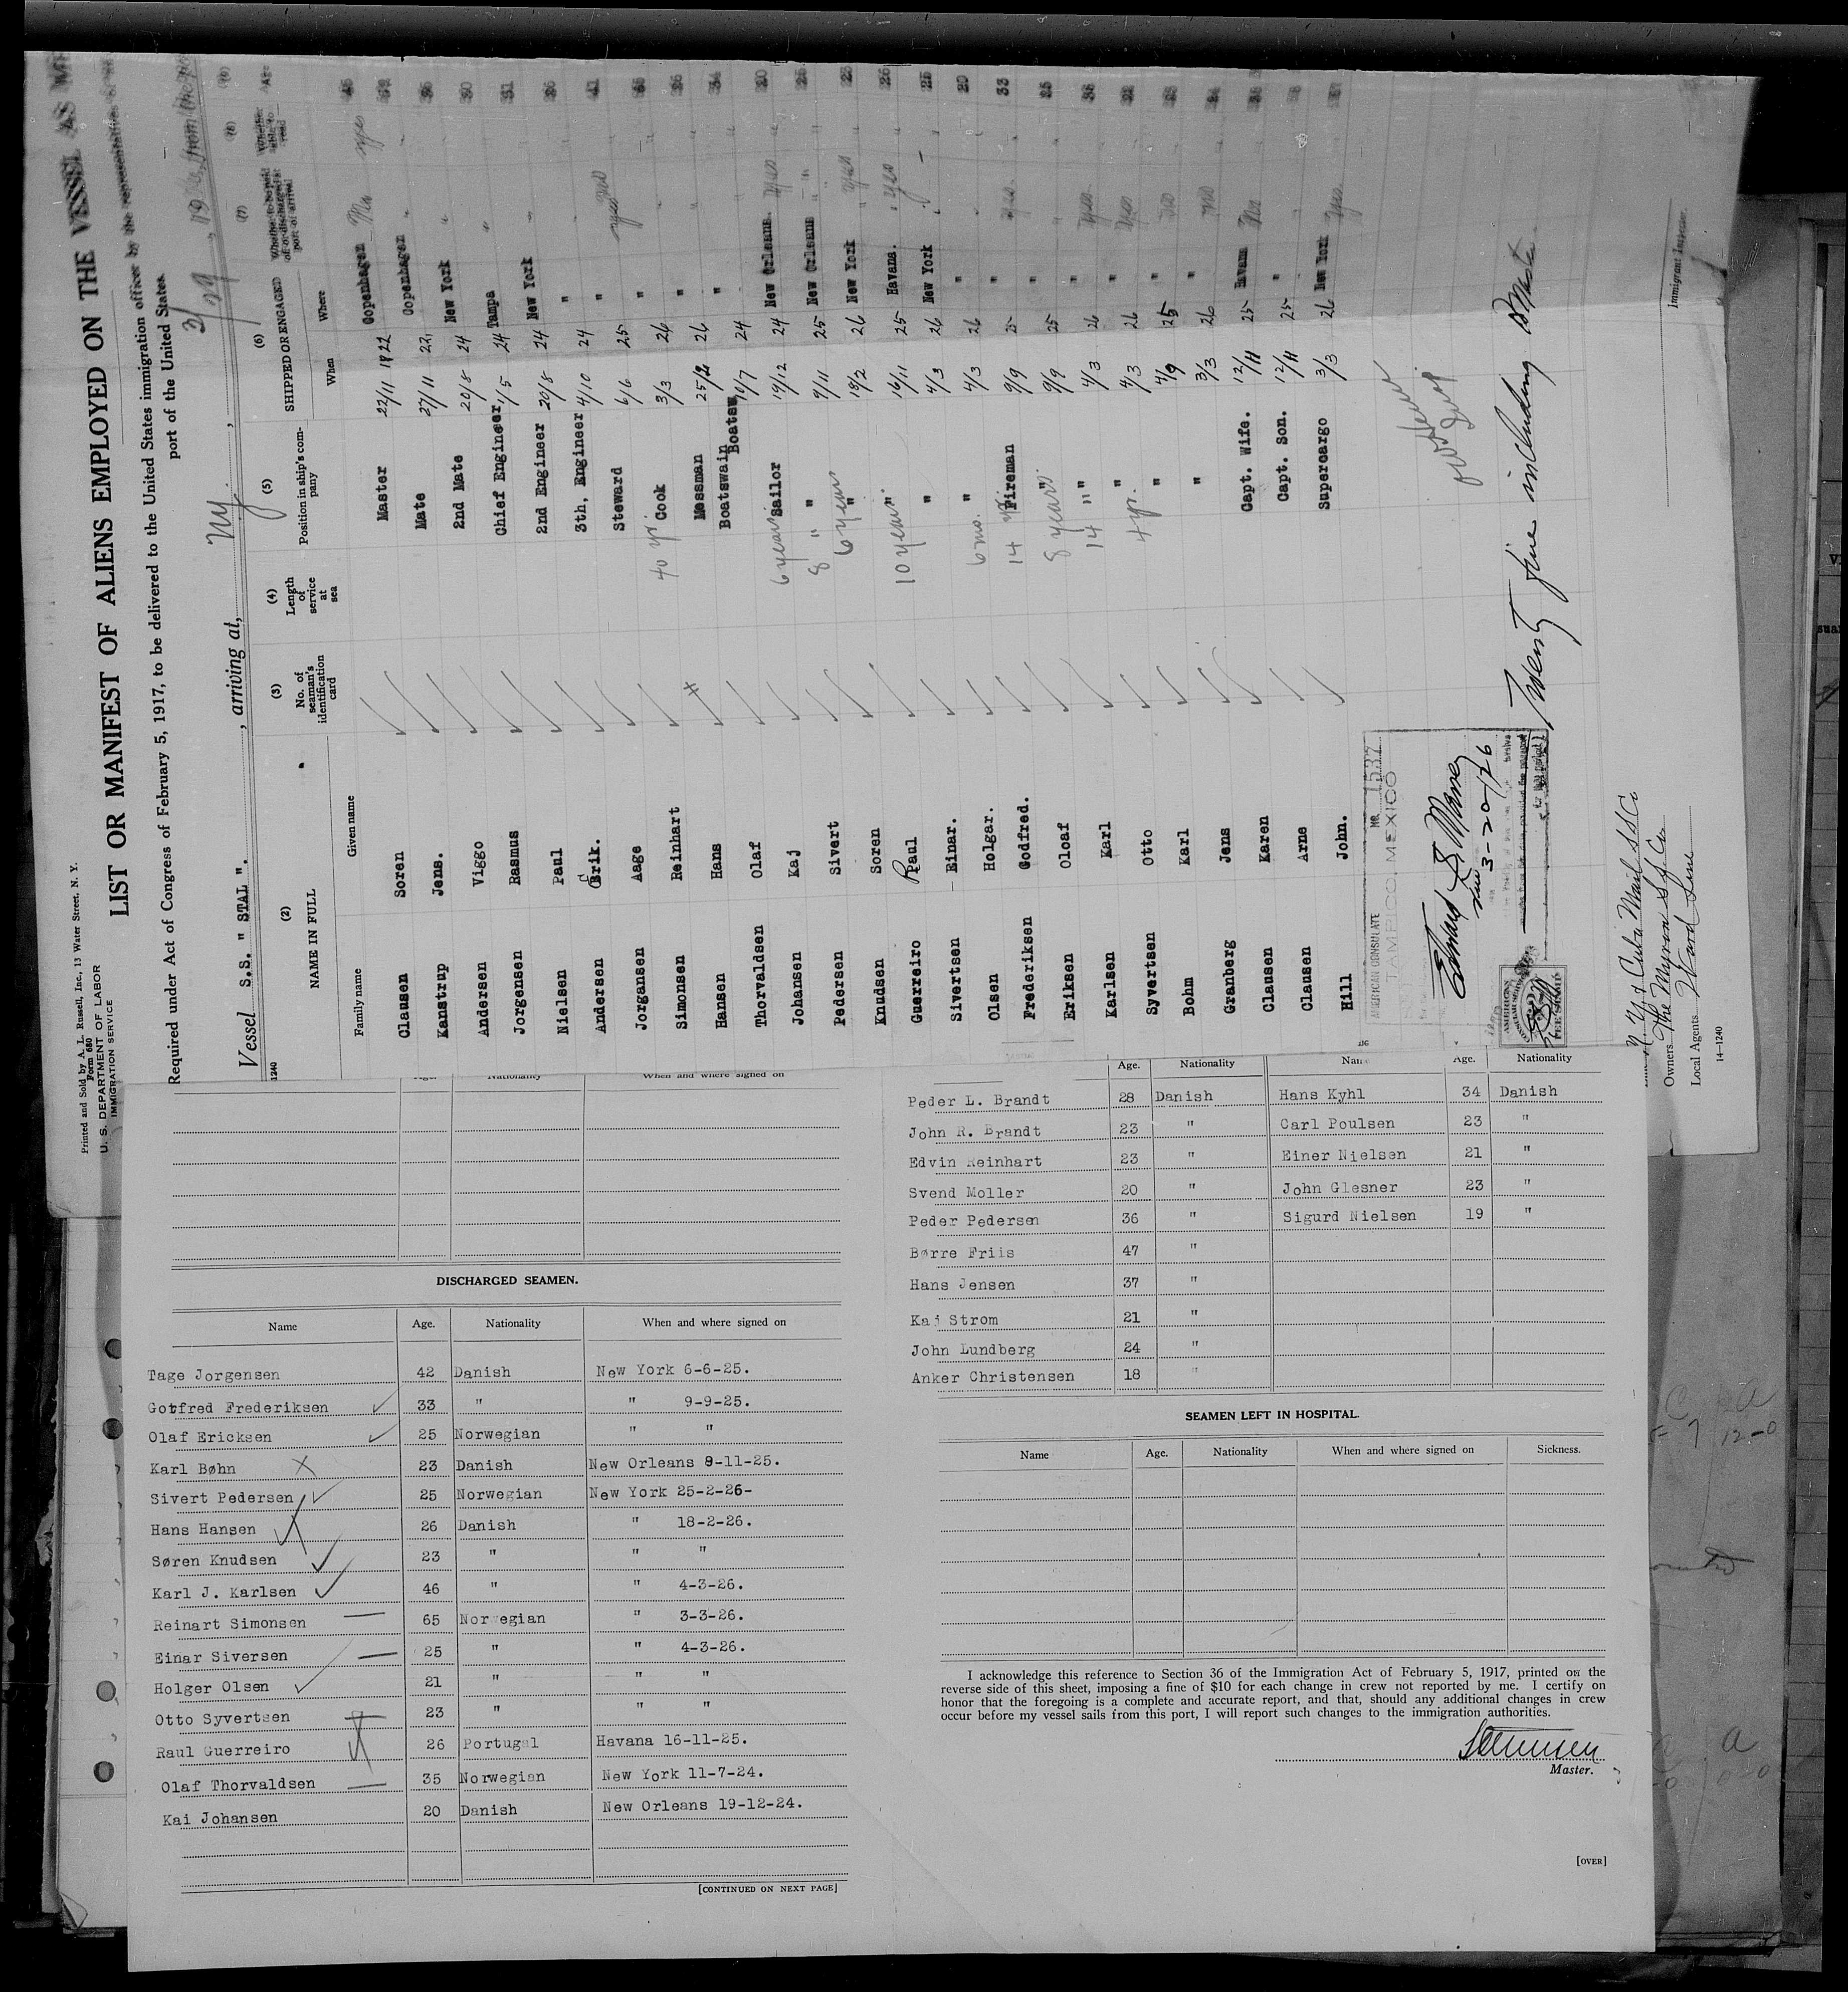 Printed and Sold by A. L. Russell, Inc., 13 Water Street, N. Y.
Form 680
U. S. DEPARTMENT OF LABOR
IMMIGRATION SERVICE
LIST OR MANIFEST OF ALIENS EMPLOYED ON THE VESSEL AS
Required under Act of Congress of February 5, 1917, to be delivered to the United States immigration officer by the representative
port of the United States.
Vessel S.S. " STAL ". , arriving at, NY , 3/29 , 192 , from the
1240
(2) NAME IN FULL
Family name Given name
(3) No. of seaman's identification card
(4) Length of service at sea
(5) Position in ship's company
(6) SHIPPED OR ENGAGED
When Where
(7) Whether to be paid off or discharged at port of arrival
(8) Whether able to read
(9) Age
Clausen Soren Master 22/11 1922 Copenhagen yes
Kanstrup Jens. Mate 27/11 22 Copenhagen
Andersen Viggo 2nd Mate 20/8 24 New York
Jorgensen Rasmus Chief Engineer 1/5 24 Tampa
Nielsen Paul 2nd Engineer 20/8 24 New York
Andersen Erik. 3th. Engineer 4/10 24 "
Jorgansen Aage Steward 6/6 25 " yes
Simonsen Reinhart 40 yr. Cook 3/3 26 "
Hansen Hans Messman 25/2 26 "
Thorvaldsen Olaf Boatswain Boatsw 11/7 24 "
Johansen Kaj 6 years Sailor 19/12 24 New Orleans. yes
Pedersen Sivert 8 " " 9/11 25 New Orleans
Knudsen Soren 6 years " 18/2 26 New York yes
Guerreiro Raul 10 years " 16/11 25 Havana. yes
Sivertsen Einar. " 4/3 26 New York
Olsen Holgar. 6 mo. " 4/3 26 "
Frederiksen Godfred. 14 yr. Fireman 9/9 25 " yes
Eriksen Oloaf 8 years " 9/9 25 "
Karlsen Karl 14 " " 4/3 26 " yes
Syvertsen Otto 4 yr. " 4/3 26 " yes
Bohm Karl " 4/9 25 "
Granberg Jens " 3/3 26 "
Clausen Karen Capt. Wife. 12/11 25 Havana
Clausen Arne Capt. Son. 12/11 25 "
Hill John. Supercargo 3/3 26 New York yes
AMERICAN CONSULATE NO. 1537
TAMPICO, MEXICO
3-20-1926
AMERICAN
Twenty five including Master
N. Y. & Cuba Mail SS Co
Owners The Munson S S Co
Local Agents Ward Line
Immigrant Inspector.
14—1240
Age. Nationality When and where signed on
DISCHARGED SEAMEN.
Name Age. Nationality When and where signed on
Tage Jorgensen 42 Danish New York 6-6-25.
Gotfred Frederiksen 33 " " 9-9-25.
Olaf Ericksen 25 Norwegian " "
Karl Bøhn 23 Danish New Orleans 9-11-25.
Sivert Pedersen 25 Norwegian New York 25-2-26-
Hans Hansen 26 Danish " 18-2-26.
Søren Knudsen 23 " " "
Karl J. Karlsen 46 " " 4-3-26.
Reinart Simonsen 65 Norwegian " 3-3-26.
Einar Siversen 25 " " 4-3-26.
Holger Olsen 21 " " "
Otto Syvertsen 23 " " "
Raul Guerreiro 26 Portugal Havana 16-11-25.
Olaf Thorvaldsen 35 Norwegian New York 11-7-24.
Kai Johansen 20 Danish New Orleans 19-12-24.
[CONTINUED ON NEXT PAGE]
Age. Nationality Name Age. Nationality
Peder L. Brandt 28 Danish Hans Kyhl 34 Danish
John R. Brandt 23 " Carl Poulsen 23 "
Edvin Reinhart 23 " Einer Nielsen 21 "
Svend Moller 20 " John Glesner 23 "
Peder Pedersen 36 " Sigurd Nielsen 19 "
Børre Friis 47 "
Hans Jensen 37 "
Kai Strom 21 "
John Lundberg 24 "
Anker Christensen 18 "
SEAMEN LEFT IN HOSPITAL.
Name Age. Nationality When and where signed on Sickness.
I acknowledge this reference to Section 36 of the Immigration Act of February 5, 1917, printed on the
reverse side of this sheet, imposing a fine of $10 for each change in crew not reported by me. I certify on
honor that the foregoing is a complete and accurate report, and that, should any additional changes in crew
occur before my vessel sails from this port, I will report such changes to the immigration authorities.
Master.
[OVER]